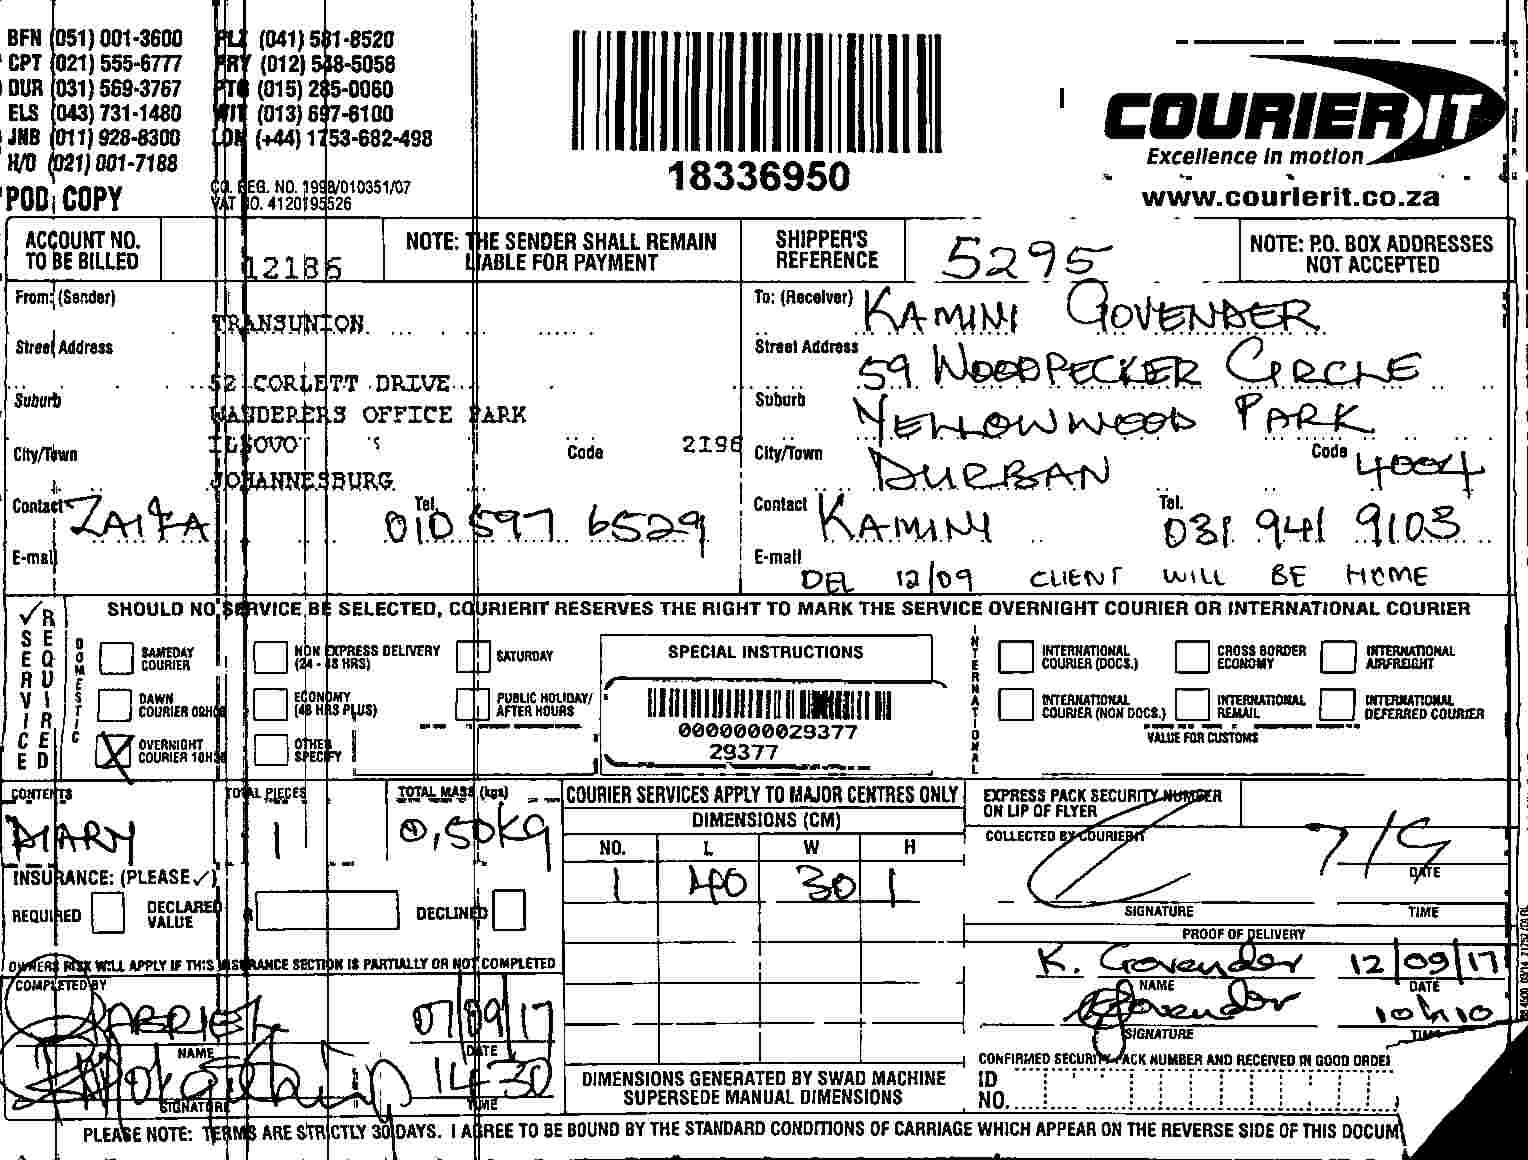 BFN (051) 001-3600 PLZ (041) 581-8520
CPT (021) 555-6777 PRY (012) 548-5058
DUR (031) 569-3767 PTG (015) 285-0060
ELS (043) 731-1480 WIT (013) 697-6100
JNB (011) 928-8300 LON (+44) 1753-682-498
H/O (021) 001-7188
POD COPY
CO. REG. NO. 1998/010351/07
VAT NO. 4120195526
18336950
COURIER IT
Excellence in motion
www.courierit.co.za
ACCOUNT NO. TO BE BILLED 12186
NOTE: THE SENDER SHALL REMAIN LIABLE FOR PAYMENT
SHIPPER'S REFERENCE 5295
NOTE: P.O. BOX ADDRESSES NOT ACCEPTED
From: (Sender) TRANSUNION
Street Address
52 CORLETT DRIVE
Suburb WANDERERS OFFICE PARK
City/Town ILSOVO Code 2196
JOHANNESBURG
Contact Tel. 010 597 6529
E-mail
To: (Receiver) KAMINI GOVENDER
Street Address 59 WOODPECKER CIRCLE
Suburb YELLOWWOOD PARK
City/Town DURBAN Code 4004
Contact KAMINI Tel. 031 941 9103
E-mail
DEL 12/09 CLIENT WILL BE HOME
✓ SERVICE REQUIRED
SHOULD NO SERVICE BE SELECTED, COURIERIT RESERVES THE RIGHT TO MARK THE SERVICE OVERNIGHT COURIER OR INTERNATIONAL COURIER
DOMESTIC
SAMEDAY COURIER
NON EXPRESS DELIVERY (24 - 48 HRS)
SATURDAY
DAWN COURIER 08H00
ECONOMY (48 HRS PLUS)
PUBLIC HOLIDAY/ AFTER HOURS
X OVERNIGHT COURIER 10H30
OTHER SPECIFY
SPECIAL INSTRUCTIONS
0000000029377
29377
INTERNATIONAL
INTERNATIONAL COURIER (DOCS.)
CROSS BORDER ECONOMY
INTERNATIONAL AIRFREIGHT
INTERNATIONAL COURIER (NON DOCS.)
INTERNATIONAL REMAIL
INTERNATIONAL DEFERRED COURIER
VALUE FOR CUSTOMS
CONTENTS TOTAL PIECES TOTAL MASS (kgs)
DIARY 1 0,50KG
INSURANCE: (PLEASE ✓)
REQUIRED DECLARED VALUE R DECLINED
OWNERS RISK WILL APPLY IF THIS INSURANCE SECTION IS PARTIALLY OR NOT COMPLETED
COMPLETED BY
GABRIEL 07/09/17
NAME DATE
14:30
SIGNATURE TIME
COURIER SERVICES APPLY TO MAJOR CENTRES ONLY
DIMENSIONS (CM)
NO. L W H
1 40 30 1
DIMENSIONS GENERATED BY SWAD MACHINE SUPERSEDE MANUAL DIMENSIONS
EXPRESS PACK SECURITY NUMBER ON LIP OF FLYER
COLLECTED BY COURIERIT
7/9
DATE
SIGNATURE TIME
PROOF OF DELIVERY
K. Govender 12/09/17
NAME DATE
Govender 10h10
SIGNATURE TIME
CONFIRMED SECURITY PACK NUMBER AND RECEIVED IN GOOD ORDER
ID NO.
PLEASE NOTE: TERMS ARE STRICTLY 30 DAYS. I AGREE TO BE BOUND BY THE STANDARD CONDITIONS OF CARRIAGE WHICH APPEAR ON THE REVERSE SIDE OF THIS DOCUM